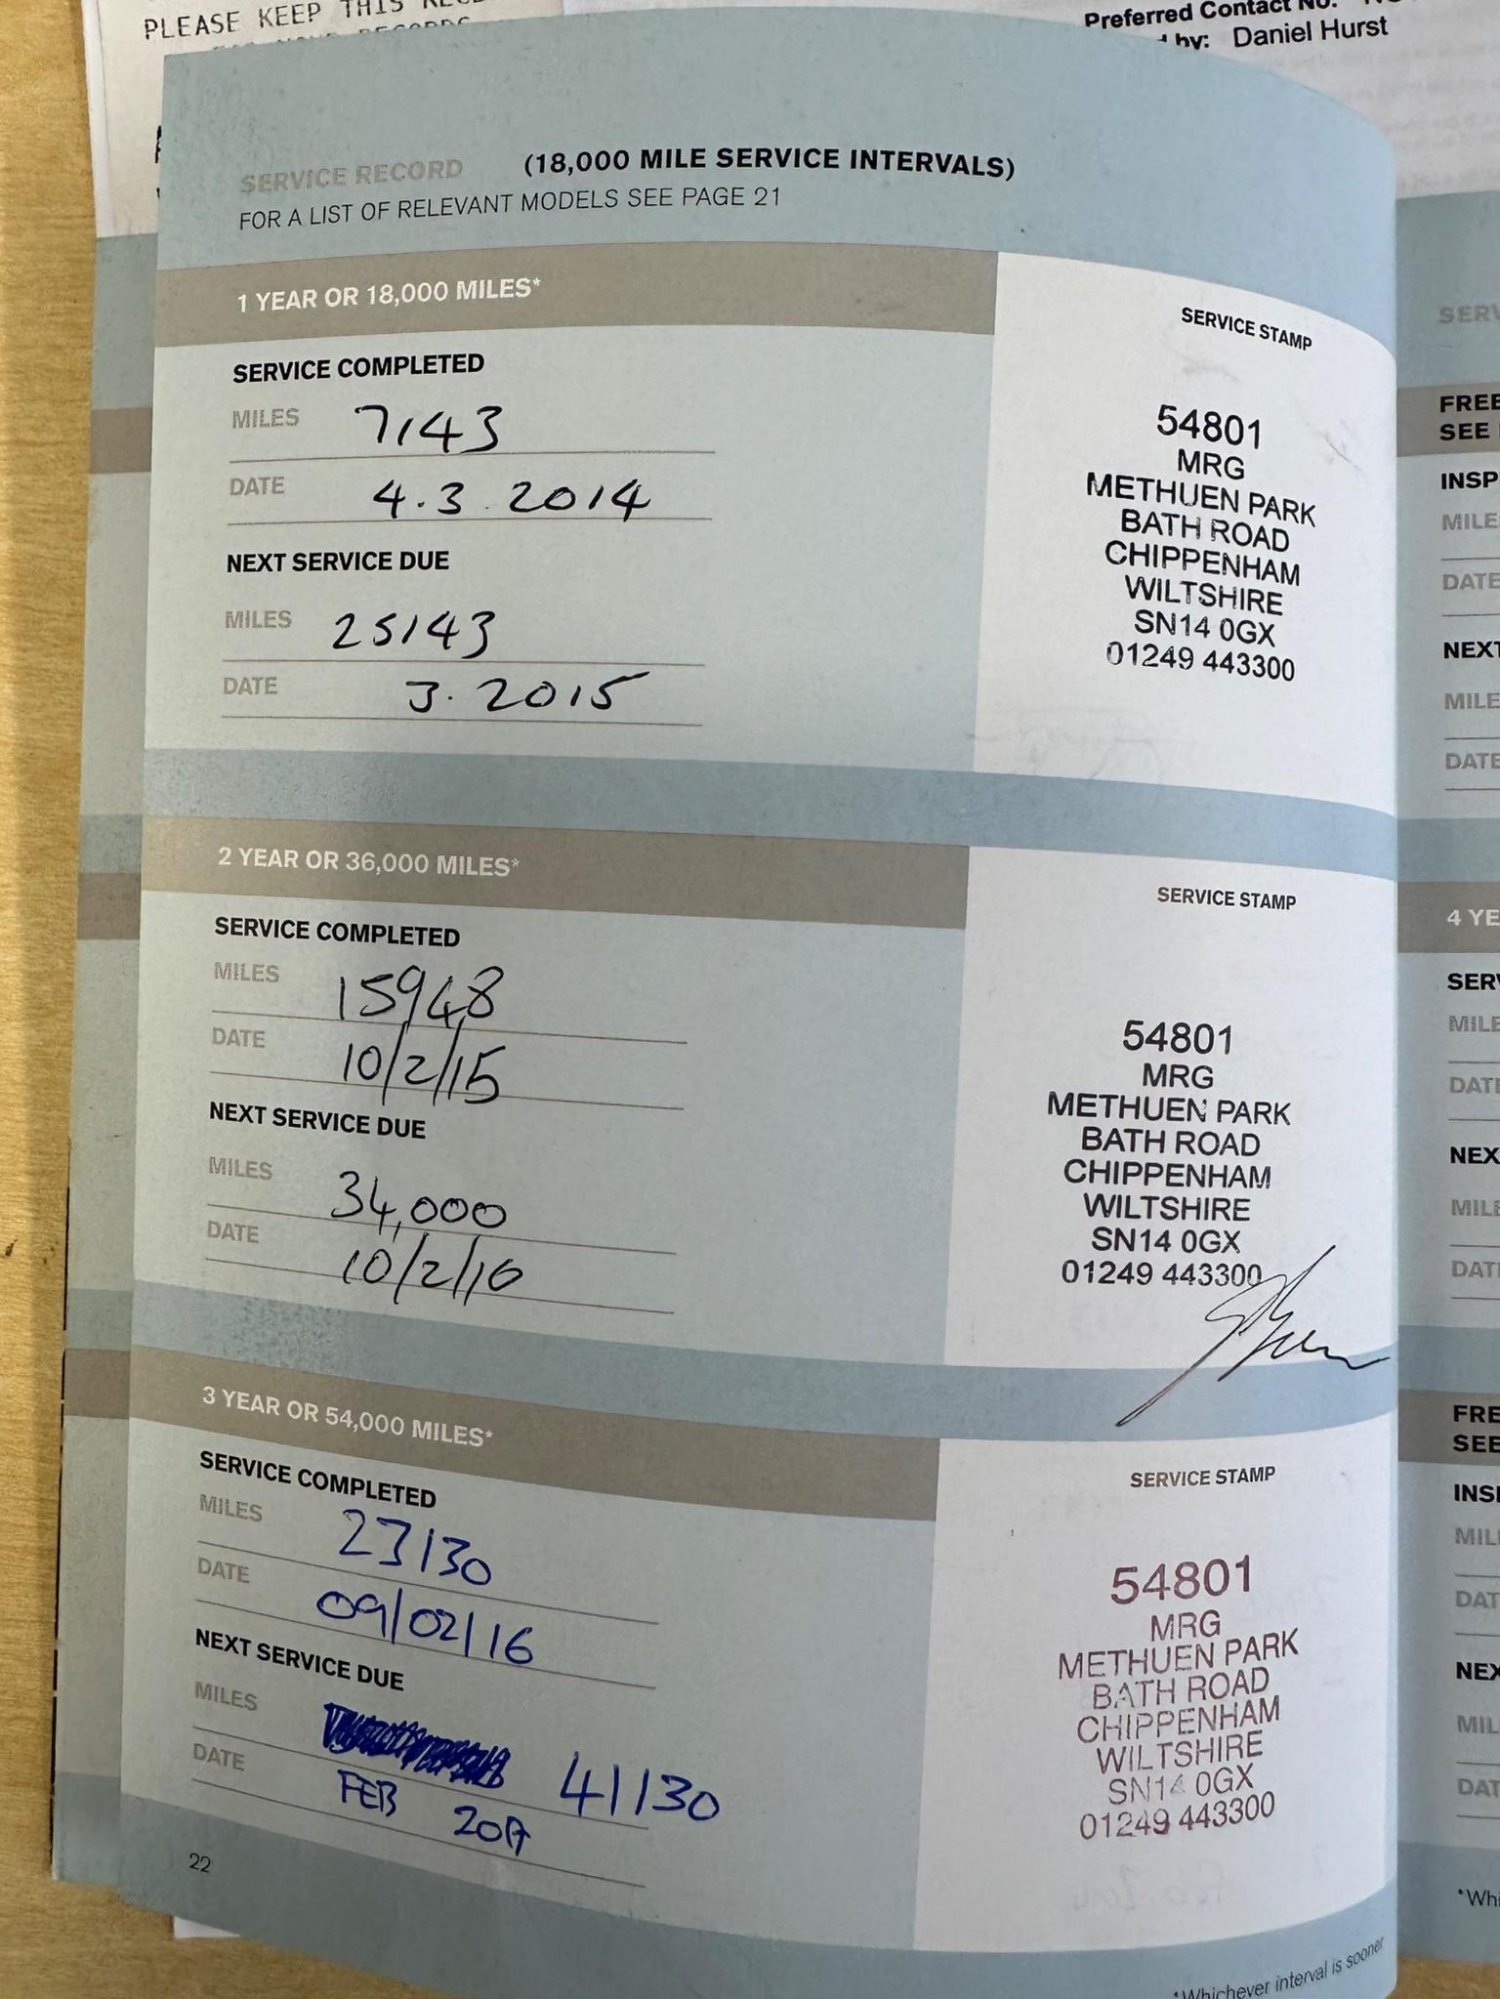 PLEASE KEEP THIS
Preferred Contact No:
by: Daniel Hurst
SERVICE RECORD (18,000 MILE SERVICE INTERVALS)
FOR A LIST OF RELEVANT MODELS SEE PAGE 21
1 YEAR OR 18,000 MILES*
SERVICE STAMP
SERVICE COMPLETED
MILES 7143
DATE 4.3.2014
NEXT SERVICE DUE
MILES 25143
DATE 3.2015
54801
MRG
METHUEN PARK
BATH ROAD
CHIPPENHAM
WILTSHIRE
SN14 0GX
01249 443300
2 YEAR OR 36,000 MILES*
SERVICE STAMP
SERVICE COMPLETED
MILES 15948
DATE 10/2/15
NEXT SERVICE DUE
MILES 34,000
DATE 10/2/16
54801
MRG
METHUEN PARK
BATH ROAD
CHIPPENHAM
WILTSHIRE
SN14 0GX
01249 443300
3 YEAR OR 54,000 MILES*
SERVICE STAMP
SERVICE COMPLETED
MILES 23130
DATE 09/02/16
NEXT SERVICE DUE
MILES 41130
DATE FEB 2017
54801
MRG
METHUEN PARK
BATH ROAD
CHIPPENHAM
WILTSHIRE
SN14 0GX
01249 443300
22
*Whichever interval is sooner
SERV
FREE
SEE
INSP
MILE
DATE
NEXT
MILE
DATE
4 YE
SERV
MILE
DATE
NEX
MILE
DATE
FRE
SEE
INSP
MIL
DAT
NEX
MIL
DAT
*Whi